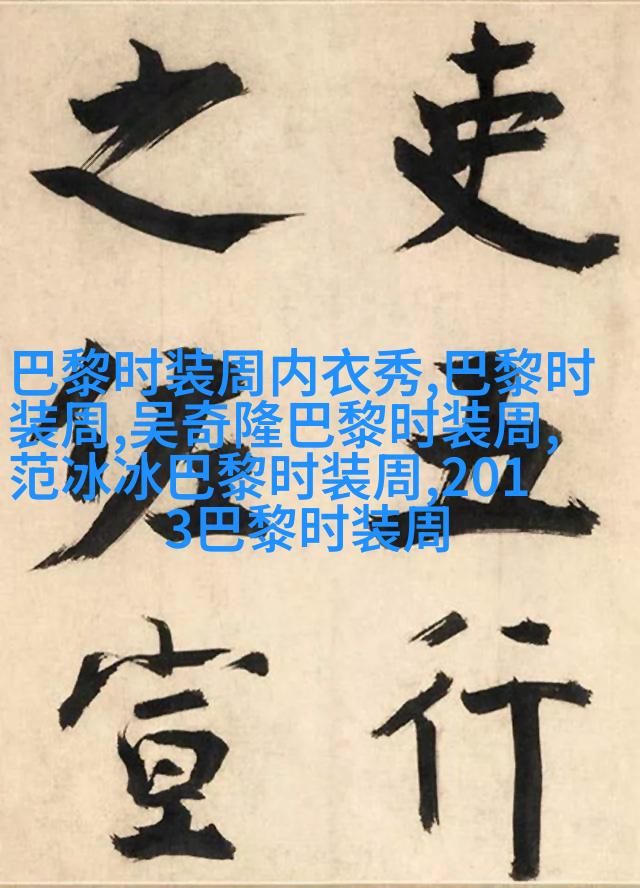 巴黎时装周内衣秀,巴黎时
装周,吴奇隆巴黎时装周,
范冰冰巴黎时装周,201
3巴黎时装周
吏五行
之宣